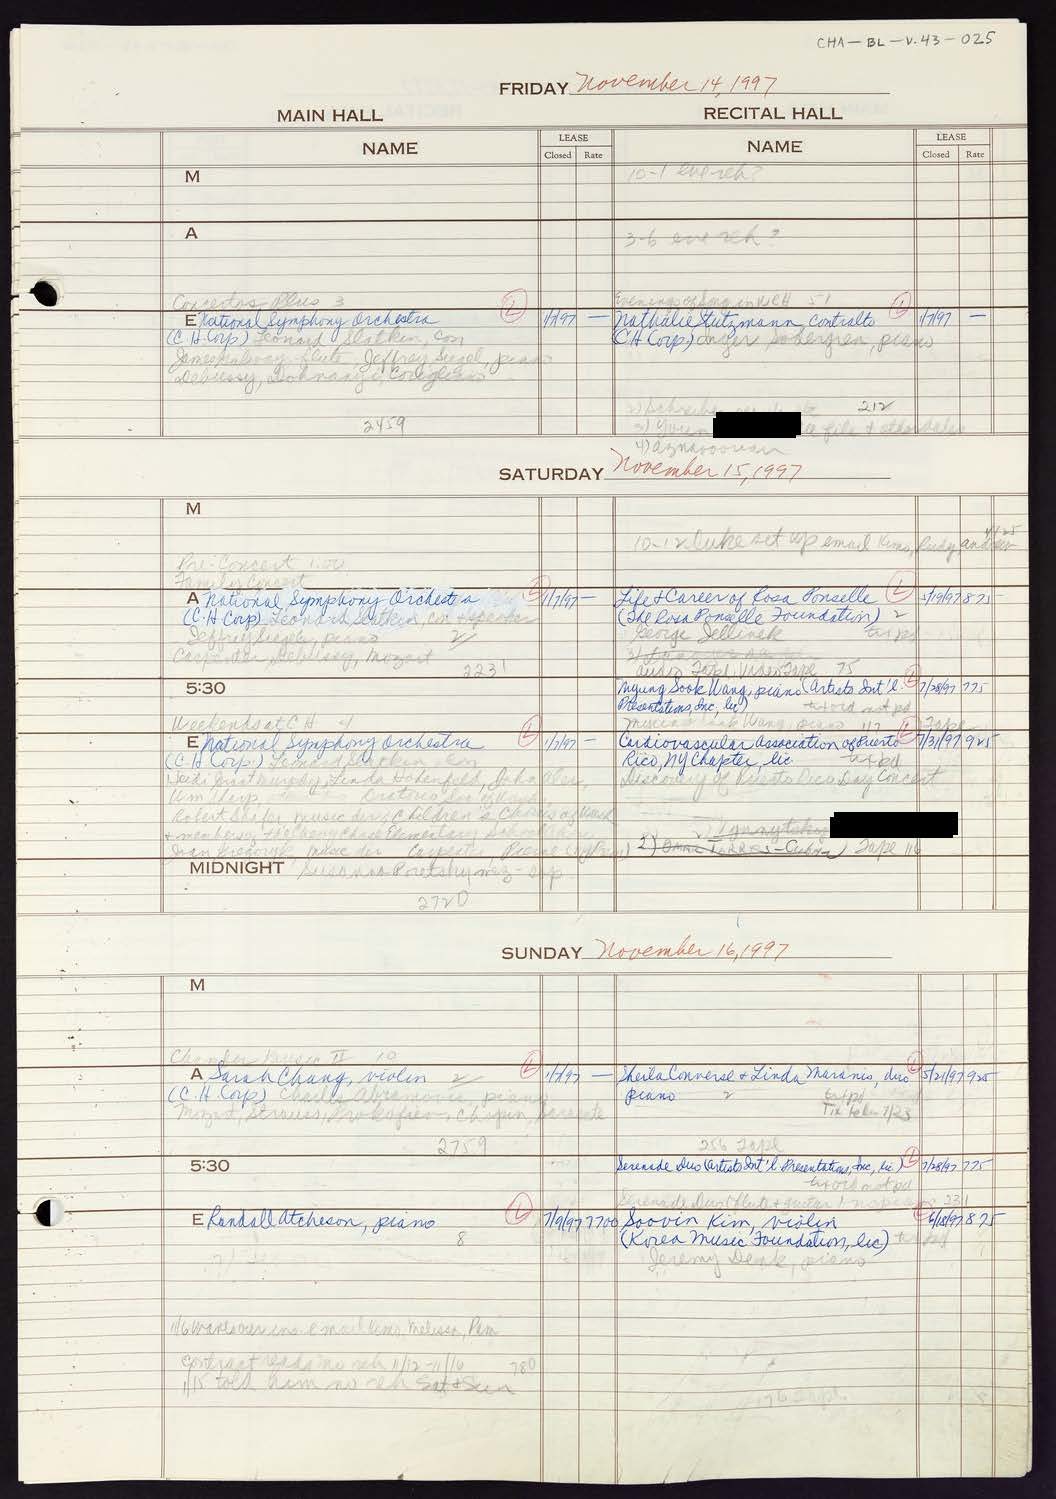 CHA-BL-V.43-025
FRIDAY November 14, 1997
MAIN HALL
RECITAL HALL
NAME
LEASE
Closed Rate
NAME
LEASE
Closed Rate
M
10-1 eve reh?
A
3-6 eve reh?
Concertos Plus 3
Evenings of Song in WRH 51
E National Symphony Orchestra L 1/7/97 —
(C.H. Corp) Leonard Slatkin, con
James Galway, flute, Jeffrey Siegel, piano
Debussy, Dohnanyi, Corigliano
2459
Nathalie Stutzmann, contralto L 1/7/97 —
(CH Corp) Inger Södergren, piano
212
3)
4)
SATURDAY November 15, 1997
M
10-12 Luke set up email Kims, Rudy, and
Pre-Concert 1:00
Family Concert
A National Symphony Orchestra L 1/7/97 —
(C.H. Corp) Leonard Slatkin, con + speaker
Jeffrey Siegel, piano 2
Carpenter, Debussy, Mozart
2231
Life & Career of Rosa Ponselle L 5/19/97 875
(The Rosa Ponselle Foundation) 2
George Jellinek
Audio Tape, Video Tape 75
5:30
Myung Sook Wang, piano (Artists Int'l L 7/28/97 775
Presentations, Inc, lic)
not pd
Wang, piano 117 Tape
Weekends at CH 4
E National Symphony Orchestra L 1/7/97 —
(C.H. Corp.) Leonard Slatkin, con
Heidi Grant Murphy, Linda Hohenfeld, John Aler,
Oratorio Soc of Wash
Robert Shafer music dir, Children's Chorus of Wash
+ members of the Chevy Chase Elementary School Chorus
music dir
MIDNIGHT Susanna Poretsky mez-sop
2720
Cardiovascular Association of Puerto L 7/31/97 925
Rico, NY Chapter, lic.
Discovery of Puerto Rico Day Concert
2) Torres-Cuba) Tape 116
SUNDAY November 16, 1997
M
Chamber Music II 10
A Sarah Chang, violin 2 L 1/7/97 —
(C.H. Corp) Charles Abramovic, piano
Mozart, Strauss, Prokofiev, Chopin, Sarasate
2759
Sheila Converse & Linda Maranis, duo L 5/21/97 925
piano 2
Tix taken 7/23
256 Tape
5:30
Serenade Duo (Artists Int'l Presentations, Inc, lic) L 7/28/97 775
not pd
Serenade Duo (flute & guitar) no piano 231
E Randall Atcheson, piano L 7/9/97 7700
8
Soovin Kim, violin L 6/18/97 875
(Korea Music Foundation, lic)
Jeremy Denk, piano
11/6 email Kims, Melissa, Pam
contract reads no reh 11/12-11/16 780
1/15 told him no reh Sat & Sun
176 Tape